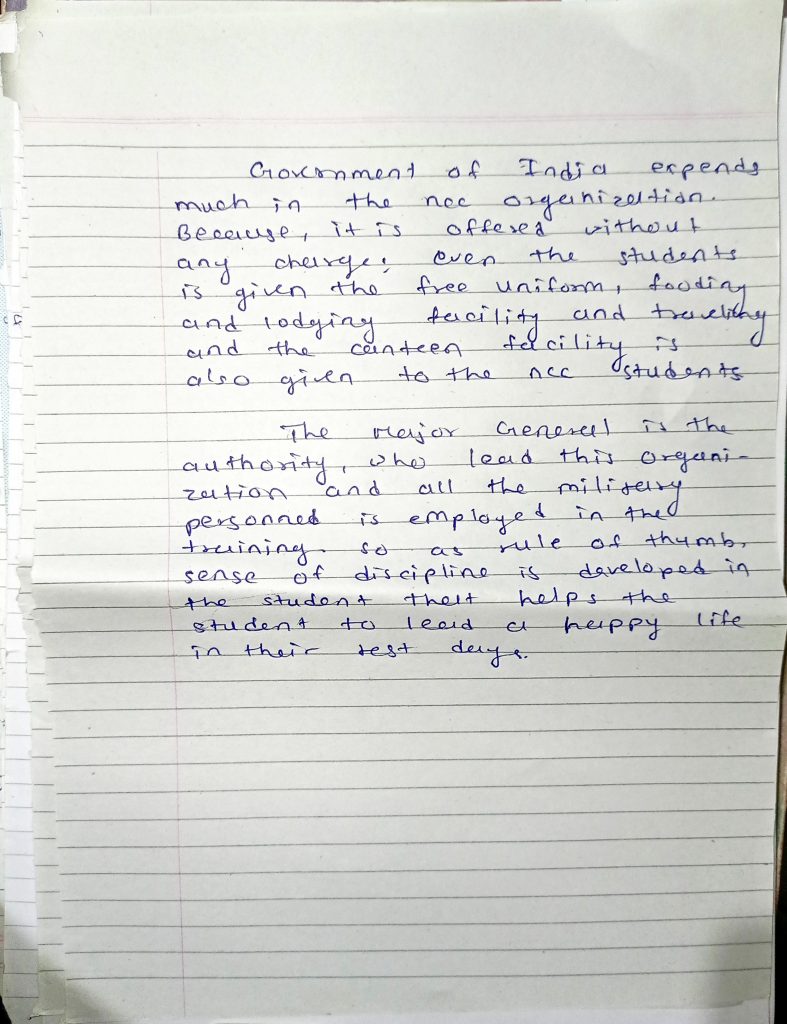 Government of India expends
much in the ncc organization.
Because, it is offered without
any charge, even the students
is given the free uniform, fooding
and lodging facility and traveling
and the canteen facility is
also given to the ncc students
The Major General is the
authority, who lead this organi-
zation and all the military
personned is employed in the
training. so as rule of thumb,
sense of discipline is developed in
the student that helps the
student to lead a happy life
in their rest days.